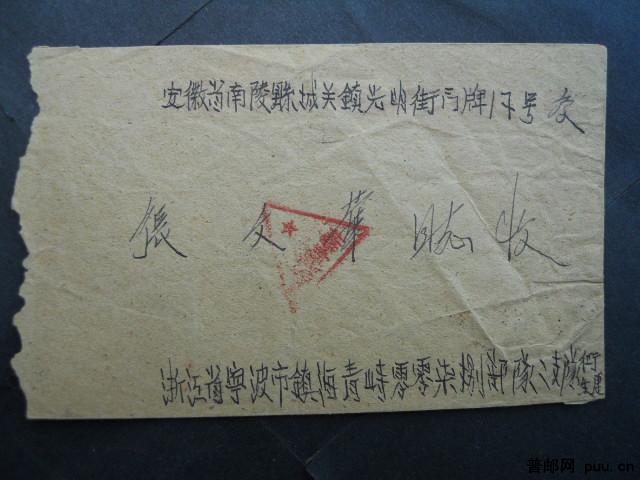 安徽省南陵縣城关鎮光明街门牌17号交
張文華同志收
浙江省宁波市鎮海青峙零零柒捌部隊二支隊
普邮网 puu.cn